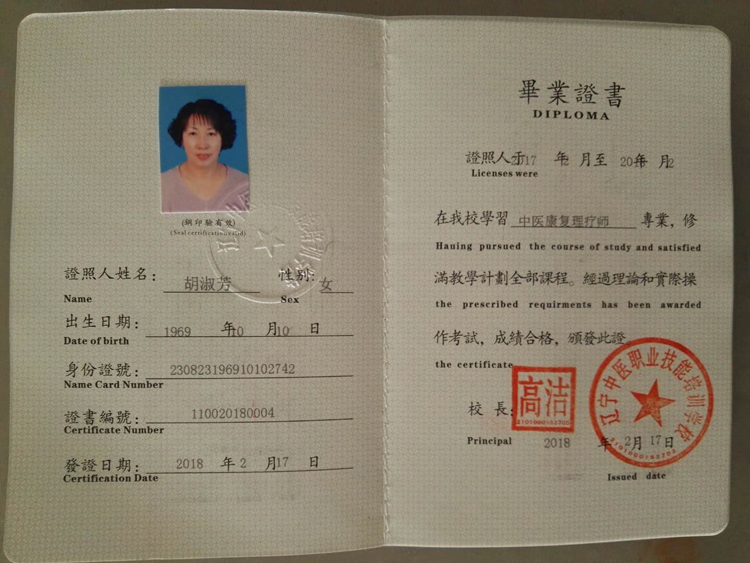 (鋼印驗有效)
(Seal certification valid)
證照人姓名：胡淑芳 性別：女
Name Sex
出生日期：1969 年10 月10 日
Date of birth
身份證號：230823196910102742
Name Card Number
證書編號：110020180004
Certificate Number
發證日期：2018 年2 月17 日
Certification Date
畢業證書
DIPLOMA
證照人于2017 年2 月至 20 年 月2
Licenses were
在我校學習 中医康复理疗师 專業，修
Hauing pursued the course of study and satisfied
滿教學計劃全部課程。經過理論和實際操
the prescribed requirments has been awarded
作考試，成績合格，頒發此證。
the certificate
校長：高洁
2101000152705
Principal 2018 年2月17日
辽宁中医职业技能培训学校
Issued date